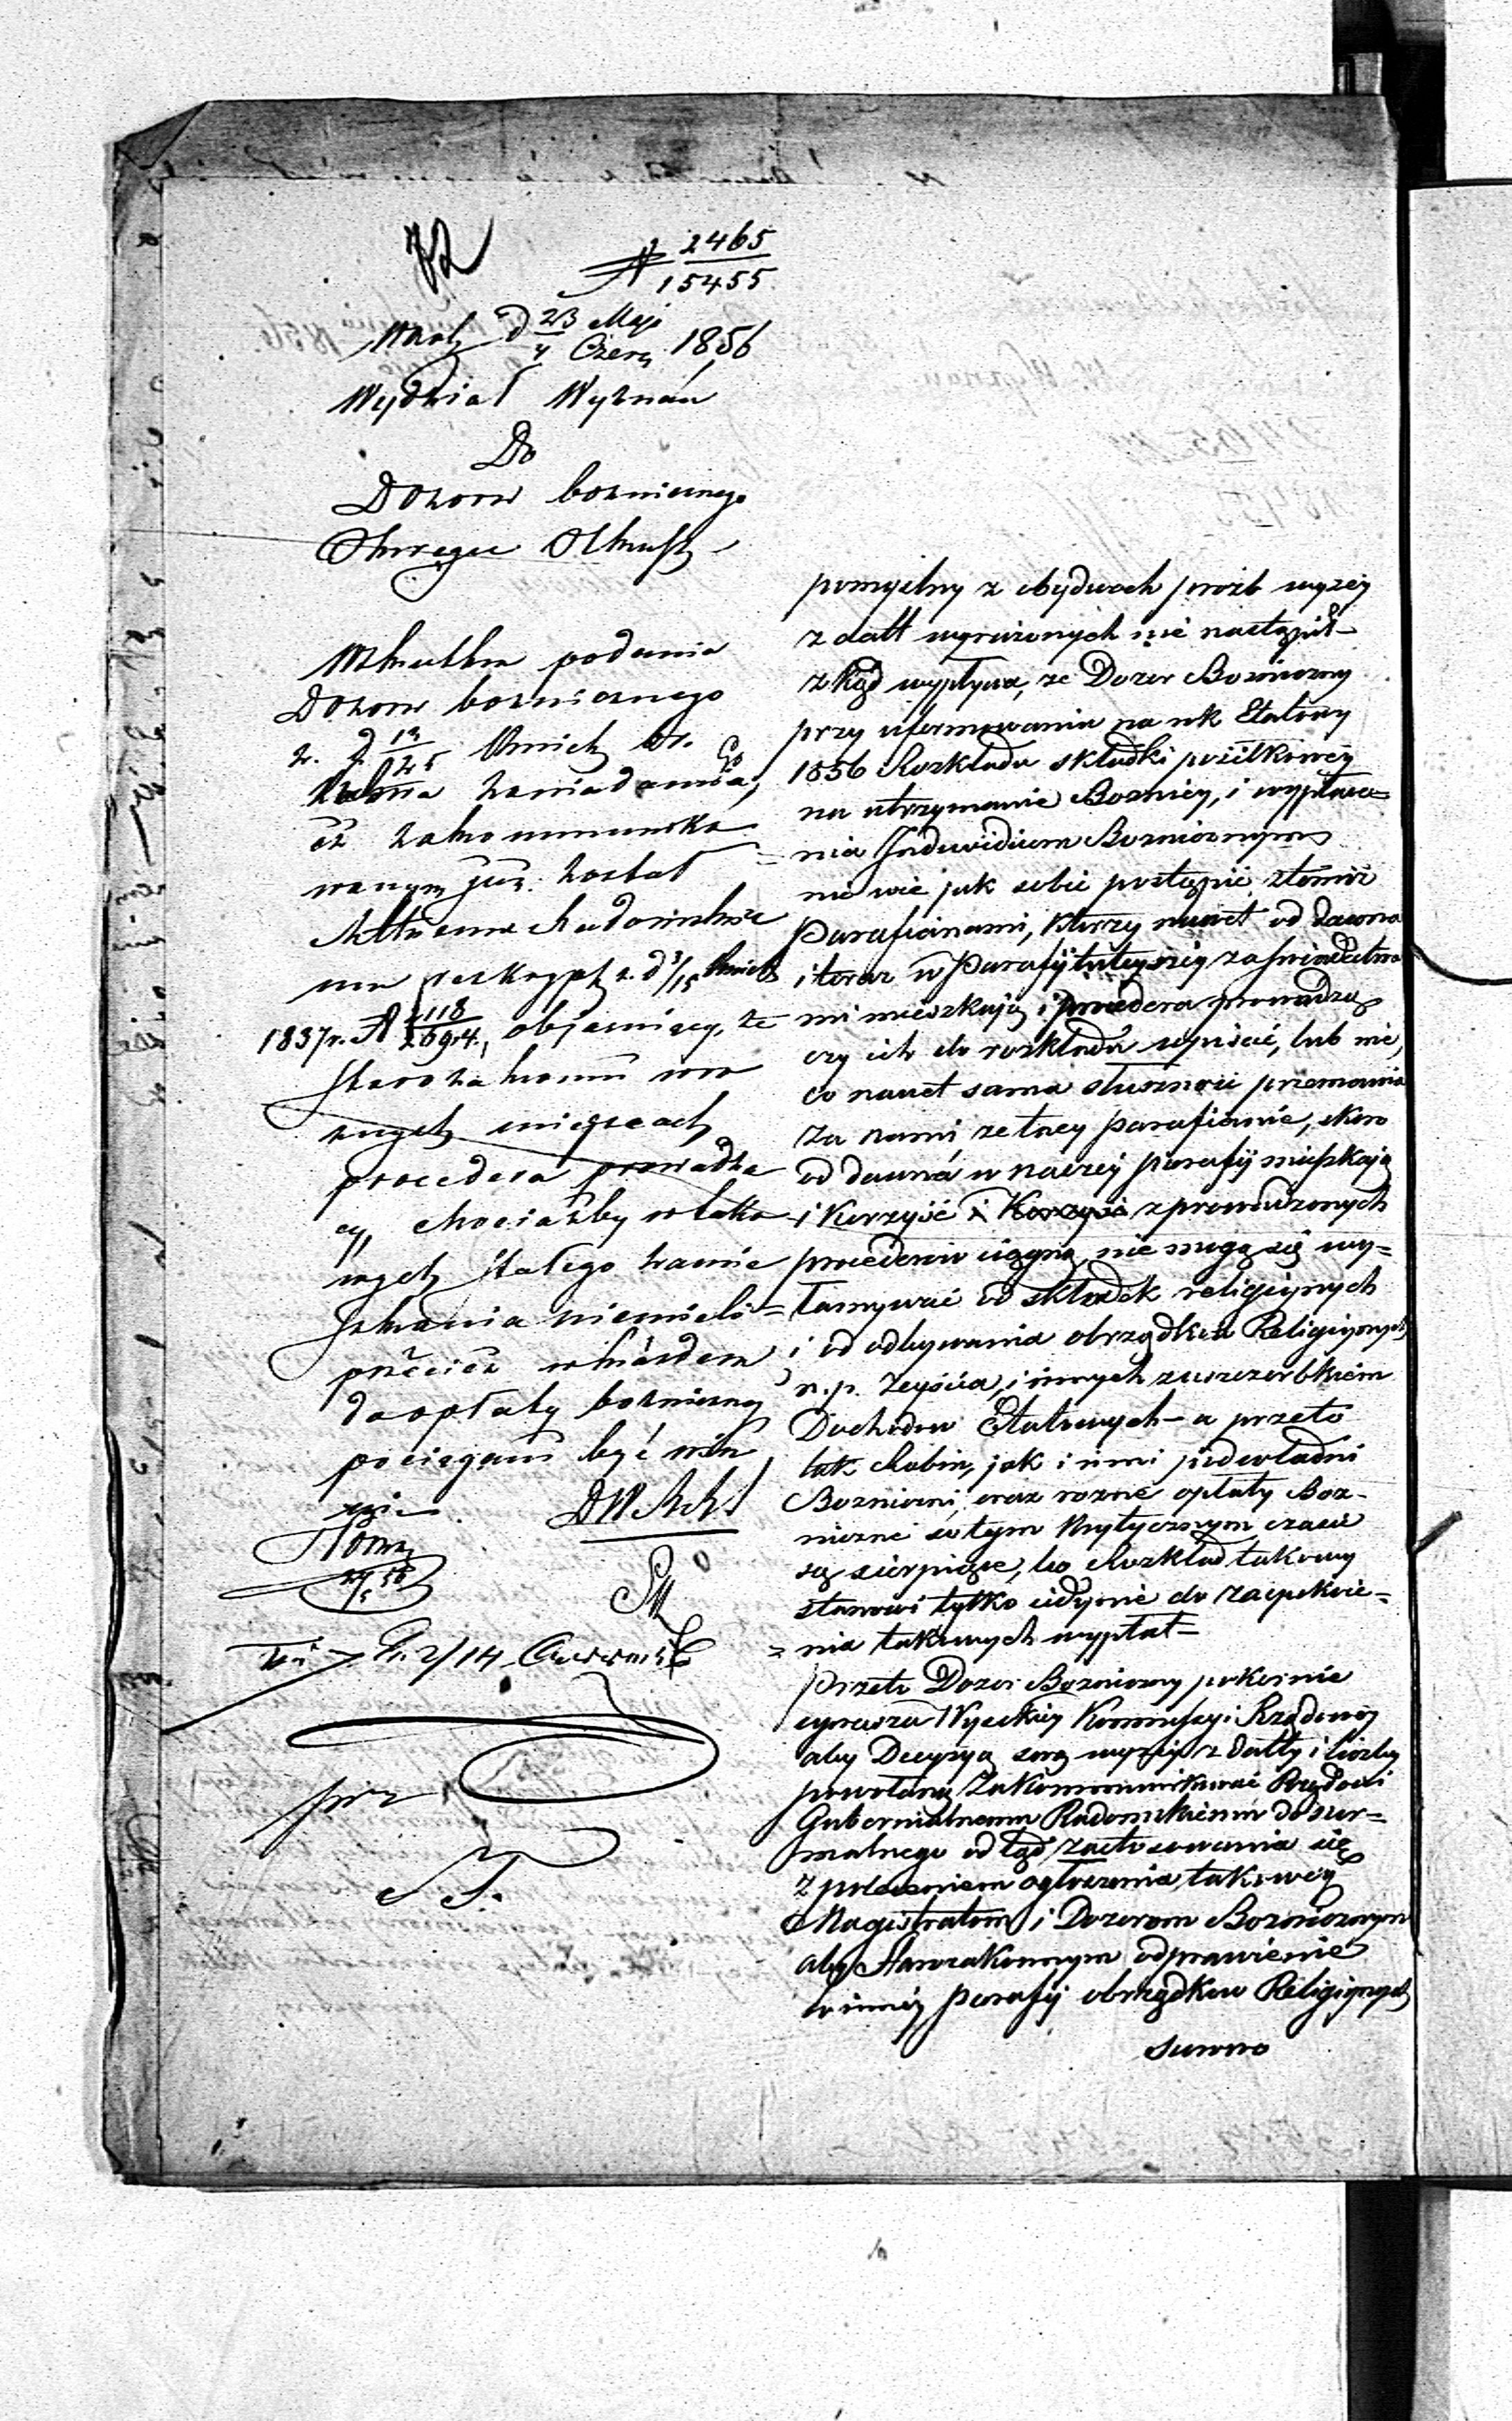 № 2465
15455
d 23 Maja
4 Czerw 1856
Wydział Wyznań
Do
Dozoru bożnicznego
Okręgu Olkusz
Wskutku podania
Dozoru bożnicznego
z. d 13/25 Kwiet br.
zawiadamia Go,
iż zakommuniko
wanym już został
Radomskie
mu reskrypt z. d 3/15 Kwiet
1837 r. № 118 objaśniający, że
Starozakonni w ro
żnych miejscach
procedera prowadzą
cy, chociażby w tako
wych stałego zamie
szkania niemieli =
przecież względem
do opłaty bożniczney
pociągani być win
ni
2/14 Czerwca
pomyślny z obydwoch prożb wyżej
z datt wyrażonych nie nastąpił —
zkąd wypływa, że Dozor Bozniczny
przy uformowaniu na rok Etatowy
1856 Rozkładu składki posiłkowey
na utrzymanie Boznicy, i wypłace=
= nia Indiwiduom Bozniczym
nie wie jak sobie postąpić z temiż
Parafianami, ktorzy nawet od dawna
i teraz w Parafij tuteyszey za świadectwa
mi mieszkają i procedera prowadzą
czy ich do rozkładu wpisać, lub nie,
co nawet sama słusznosć przemawia
za nami, że tacy parafianie, skoro
od dawna w naszey Parafij mieszkają
i Korzyść i Korzyść z prowadzonych
procederow ciągną, nie mogą się wy=
łamywać od składek religijnych
i od odbywania obrządkow Religijnych
n.p. zeyścia, i innych z uszczerbkiem
Dochodow Etatowych — a przeto
tak Rabin, jak i inni podwładni
Bozniczni, oraz rożne opłaty Boz-
niczne w tym krytycznym czasie
są cierpiące, bo Rozkład takowy
stanowi tylko jedynie do zaspokoie=
= nia takowych wypłat =
Przeto Dozor Bozniczny pokornie
uprasza Wysokiey Kommissyi Rządowey
aby Decyzyą swą wyżey z datty i liczby
powołaną zakommunikować Rządowi
Gubernialnemu Radomskiemu do nor=
malnego odtąd zastosowania się
z poleceniem ogłoszenia takowey
Magistratom i Dozorom Bozniczym
aby Starozakonnym odprawienie
w inney parafij obrządkow Religijnych
surowo